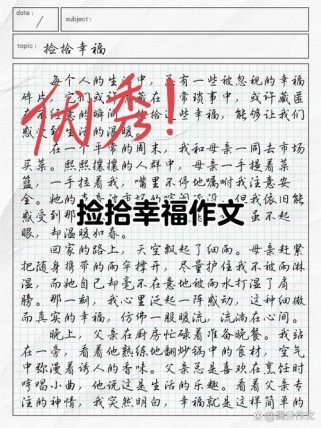 date:
subject:
topic: 捡拾幸福
每个人的生活中,总有一些被忽视的幸福
碎片,它们或许藏在日常琐事中,或许藏匿
的瞬间
捡拾这些幸福,能够让我们
感受到生活的温暖。
优秀!
在一个平常的周末,我和母亲一同去市场
买菜。熙熙攘攘的人群中,母亲一手提着菜
篮,一手拉着我,嘴里不停地嘱咐我注意安
全。她的
我依旧能
感受到那
虽不起
捡拾幸福作文
眼,却温暖如春。
回家的路上,天空飘起了细雨。母亲赶紧
把随身携带的雨伞撑开,尽量护住我不被雨淋
湿,而她自己却毫不在意地被雨水打湿了肩
膀。那一刻,我心里泛起一阵感动,这种细微
而真实的幸福,仿佛一股暖流,流淌在心间。
晚上,父亲在厨房忙碌着准备晚餐。我站
在一旁,看着他熟练地翻炒锅中的食材,空气
中弥漫着诱人的香味。父亲总是喜欢在烹饪时
哼唱小曲,他说这是生活的乐趣。看着父亲专
注的神情,我突然明白,幸福就是这样简单的